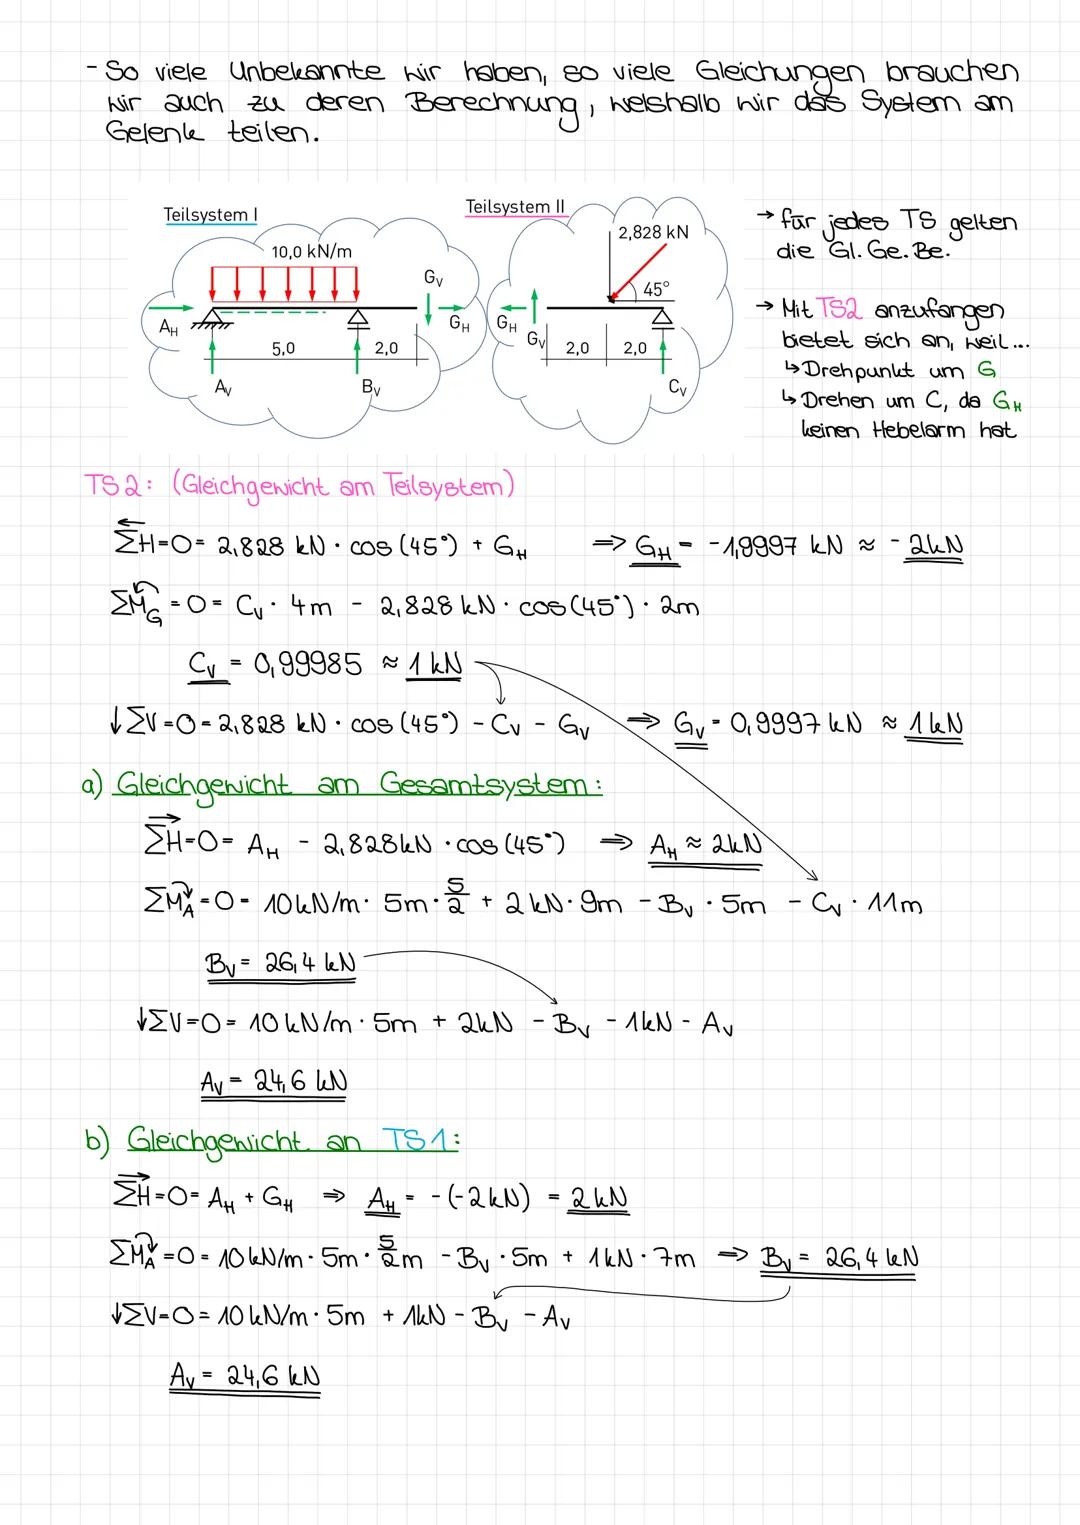 - So viele Unbekannte wir haben, so viele Gleichungen brauchen
wir auch zu deren Berechnung, weishalb wir das System am
Gelenk teilen.
Teilsystem I
Teilsystem II
10,0 kN/m
2,828 kN
45°
A_H
G_V
G_H
G_H
G_V
5,0
2,0
2,0
2,0
A_V
B_V
C_V
→ für jedes TS gelten
die Gl. Ge. Be.
→ Mit TS2 anzufangen
bietet sich an, weil...
↳ Drehpunkt um G
↳ Drehen um C, da G_H
keinen Hebelarm hat
TS2: (Gleichgewicht am Teilsystem)
←ΣH=0= 2,828 kN · cos (45°) + G_H ⇒ G_H = -1,9997 kN ≈ -2kN
ΣM_G↶ = 0 = C_V · 4m - 2,828 kN · cos(45°) · 2m
C_V = 0,99985 ≈ 1 kN
↓ΣV=0=2,828 kN · cos (45°) - C_V - G_V ⇒ G_V = 0,9997 kN ≈ 1kN
a) Gleichgewicht am Gesamtsystem:
→ΣH=0= A_H - 2,828kN · cos (45°) ⇒ A_H ≈ 2kN
ΣM_A↷=0= 10kN/m · 5m · 5/2 + 2 kN · 9m - B_V · 5m - C_V · 11m
B_V = 26,4 kN
↓ΣV=0= 10 kN/m · 5m + 2kN - B_V - 1kN - A_V
A_V = 24,6 kN
b) Gleichgewicht an TS1:
→ΣH=0= A_H + G_H ⇒ A_H = -(-2kN) = 2 kN
ΣM_A↷=0= 10 kN/m · 5m · 5/2 m - B_V · 5m + 1kN · 7m ⇒ B_V = 26,4 kN
↓ΣV=0= 10 kN/m · 5m + 1kN - B_V - A_V
A_V = 24,6 kN